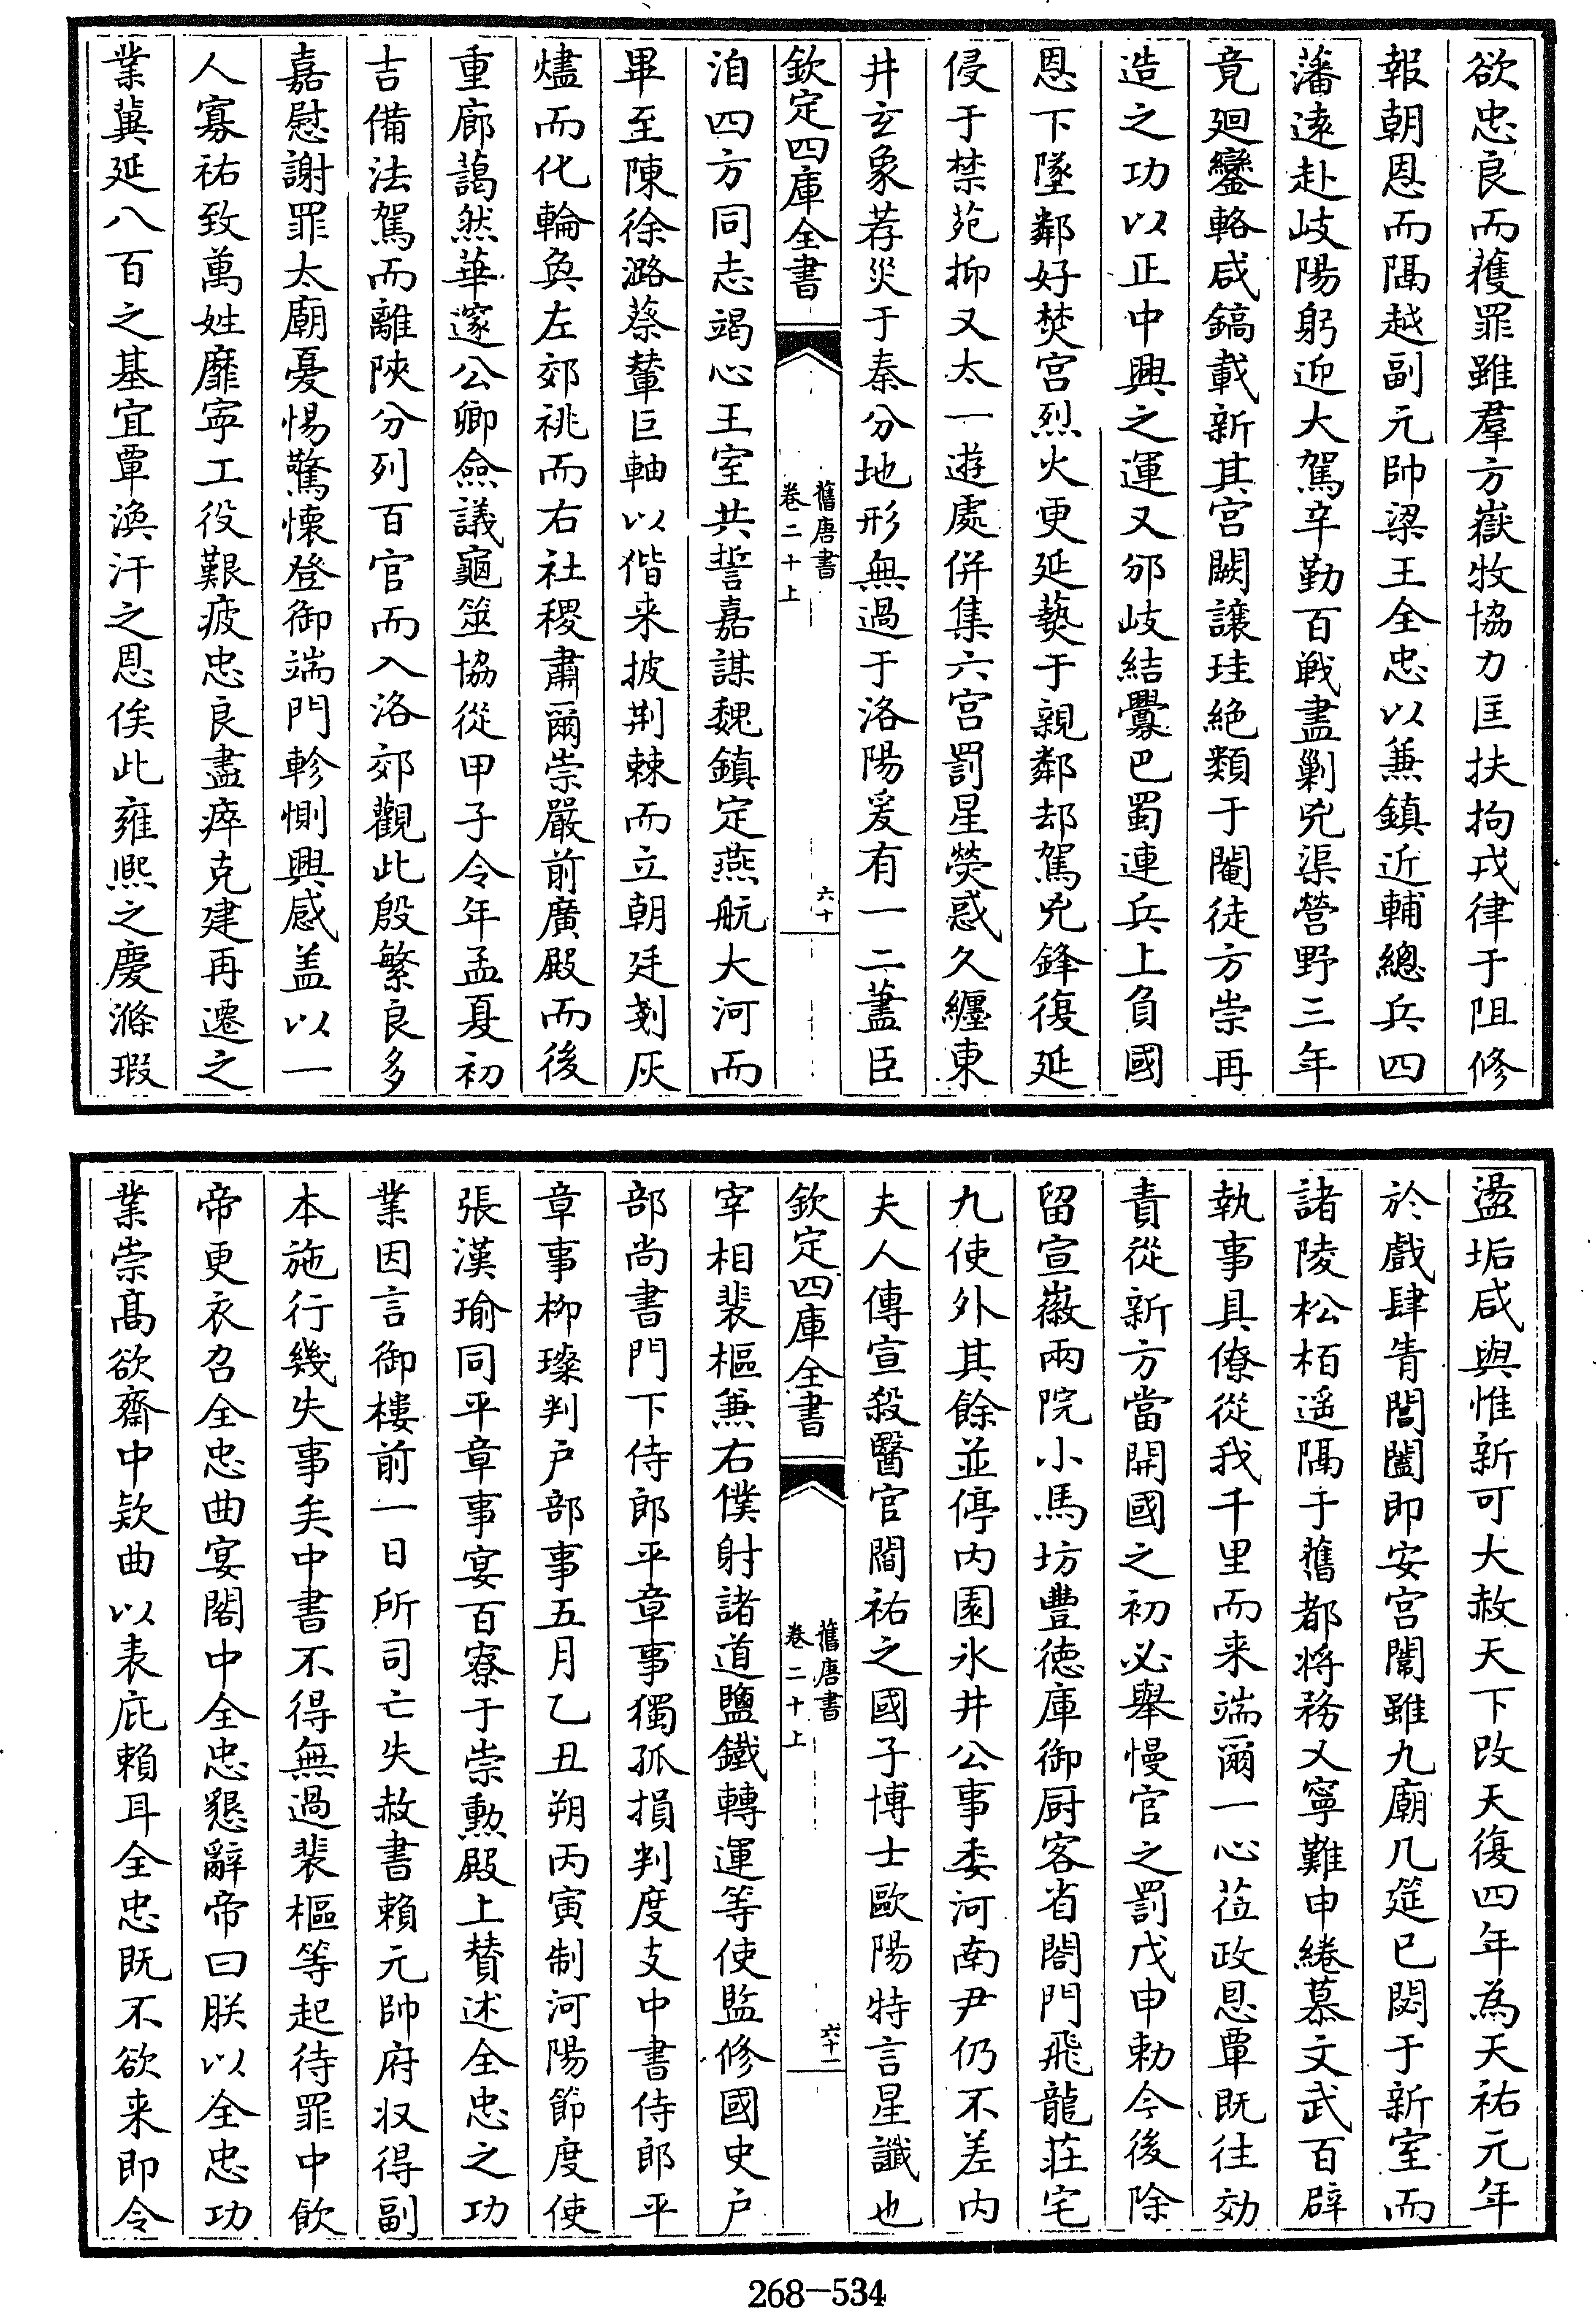 欲忠良而獲罪雖羣方嶽牧協力匡扶拘戎律于阻修
報朝恩而隅越副元帥梁王全忠以兼鎮近輔總兵四
藩遠赴岐陽躬迎大駕辛勤百戰盡剿兇渠營野三年
竟廻鑾輅咸鎬載新其宮闕讓珪絶類于閹徒方崇再
造之功以正中興之運又邠岐結釁巴蜀連兵上負國
恩下墜鄰好焚宮烈火更延爇于親鄰却駕兇鋒復延
侵于禁苑抑又太一遊處併集六宮罰星熒惑久纏東
井玄象荐災于秦分地形無過于洛陽爰有一二藎臣
欽定四庫全書
舊唐書
卷二十上
六十
洎四方同志竭心王室共誓嘉謀魏鎮定燕航大河而
畢至陳徐潞蔡輦巨軸以偕来披荆棘而立朝廷剗灰
燼而化輪奐左郊祧而右社稷肅爾崇嚴前廣殿而後
重廊藹然華邃公卿僉議龜筮協從甲子令年孟夏初
吉備法駕而離陝分列百官而入洛郊觀此殷繁良多
嘉慰謝罪太廟憂惕驚懷登御端門軫惻興感盖以一
人寡祐致萬姓靡寧工役艱疲忠良盡瘁克建再遷之
業冀延八百之基宜覃渙汗之恩俟此雍熙之慶滌瑕
盪垢咸與惟新可大赦天下改天復四年為天祐元年
於戲肆眚閶闔即安宮闈雖九廟几筵已閟于新室而
諸陵松栢遥隅于舊都将務乂寧難申綣慕文武百辟
執事具僚從我千里而来端爾一心莅政恩覃既往効
責從新方當開國之初必舉慢官之罰戊申勅今後除
留宣徽兩院小馬坊豐德庫御厨客省閤門飛龍莊宅
九使外其餘並停内園氷井公事委河南尹仍不差内
夫人傳宣殺醫官閻祐之國子博士歐陽特言星讖也
欽定四庫全書
舊唐書
卷二十上
六十一
宰相裴樞兼右僕射諸道鹽鐵轉運等使監修國史户
部尚書門下侍郎平章事獨孤損判度支中書侍郎平
章事柳璨判户部事五月乙丑朔丙寅制河陽節度使
張漢瑜同平章事宴百寮于崇勲殿上賛述全忠之功
業因言御樓前一日所司亡失赦書賴元帥府収得副
本施行幾失事矣中書不得無過裴樞等起待罪中飲
帝更衣召全忠曲宴閤中全忠懇辭帝曰朕以全忠功
業崇髙欲齋中欵曲以表庇賴耳全忠既不欲来即令
268-534